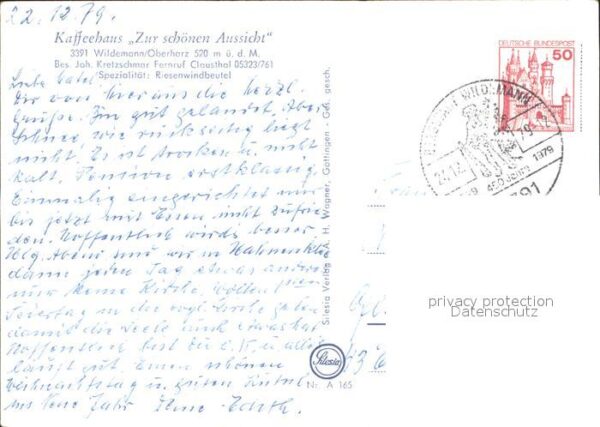 22.12.79.
Kaffeehaus „Zur schönen Aussicht"
3391 Wildemann/Oberharz 520 m ü. d. M.
Bes. Joh. Kretzschmar Fernruf Clausthal 05323/761
Spezialität: Riesenwindbeutel
Liebe
Dir von hier aus die herzl.
Grüße. Bin gut gelandet. Aber
Schnee wie rückseitig liegt
nicht. Es ist trocken u. nicht
kalt. Pension erstklassig.
Einmalig eingerichtet nur
bis jetzt mit Essen nicht zufrie-
den. Hoffentlich wirds besser.
Hlg. Abend sind wir in
dann jeden Tag etwas anderes
nur meine Kirche
Feiertag in die evgl. Kirche gehen
damit die Seele auch etwas hat
Hoffentlich bist Du z. T. u. alles
läuft gut. Einen schönen
Weihnachtstag u. guten Rutsch
ins Neue Jahr Deine Edith.
Silesia Verlag A. H. Wagner, Göttingen - Ges. gesch.
Silesia
Nr. A 165
DEUTSCHE BUNDESPOST
50
WILDEMANN
1979
450 Jahre
privacy protection
Datenschutz